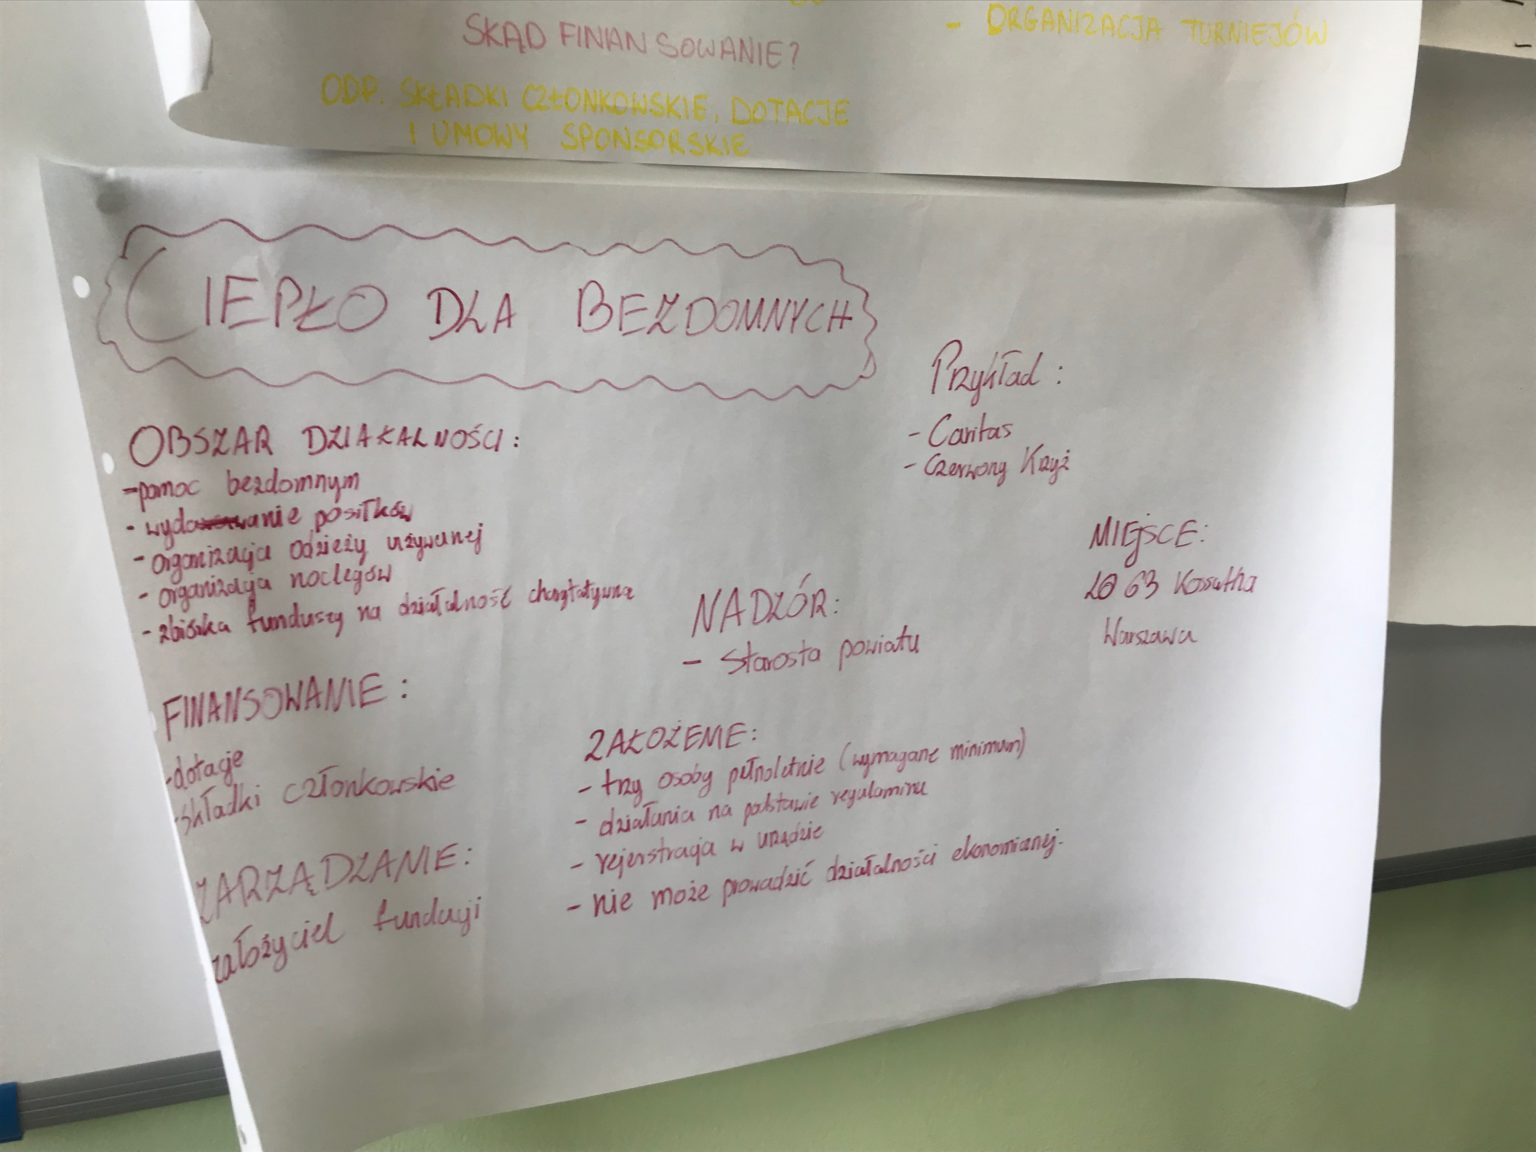 SKĄD FINANSOWANIE?
ODP. SKŁADKI CZŁONKOWSKIE, DOTACJE
I UMOWY SPONSORSKIE
- ORGANIZACJA TURNIEJÓW
CIEPŁO DLA BEZDOMNYCH
OBSZAR DZIAŁALNOŚCI:
- pomoc bezdomnym
- wydawanie posiłków
- organizacja odzieży używanej
- organizacja noclegów
- zbiórka funduszy na działalność charytatywną
FINANSOWANIE:
- dotacje
- składki członkowskie
ZARZĄDZANIE:
założyciel fundacji
NADZÓR:
- Starosta powiatu
ZAŁOŻENIE:
- trzy osoby pełnoletnie (wymagane minimum)
- działania na podstawie regulaminu
- rejerstracja w urzędzie
- nie może prowadzić działalności ekonomicznej.
Przykład:
- Caritas
- Czerwony Krzyż
MIEJSCE:
LO 63 Kossutha
Warszawa